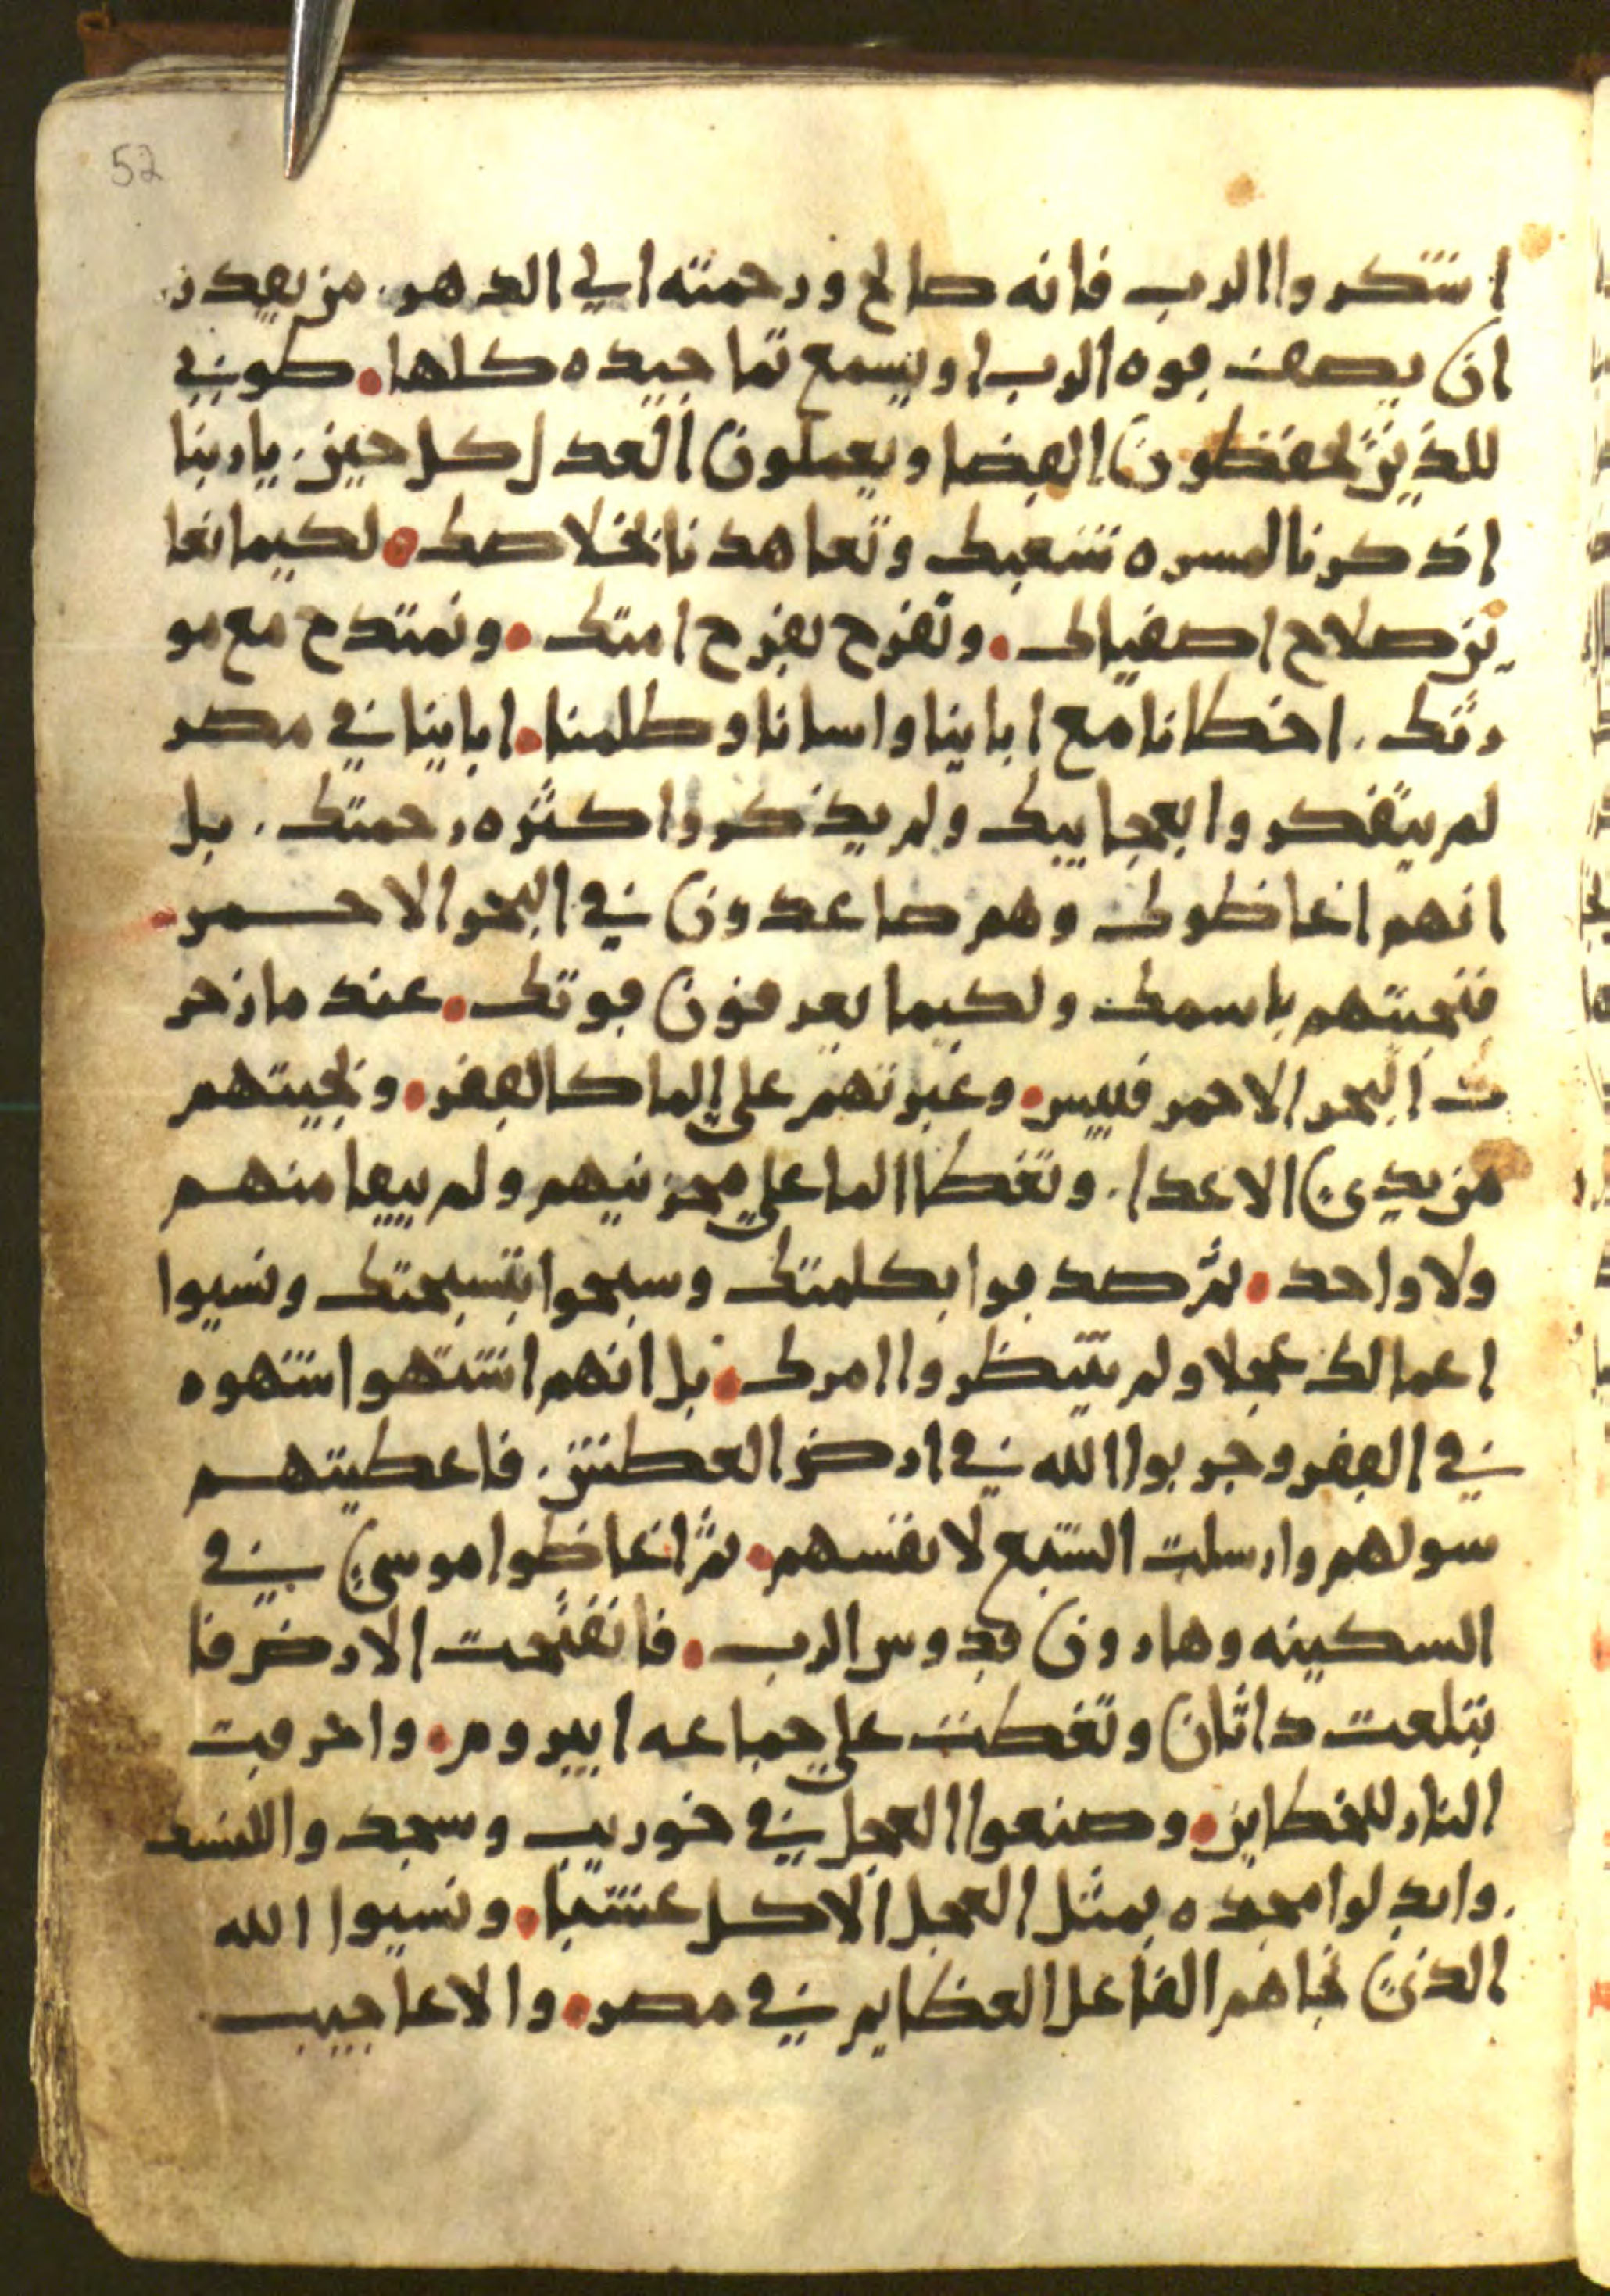 52
اشكروا الرب فانه صالح ورحمته الي الدهر. من يقدر
ان يصف قوه الرب او يسمع تماجيده كلها. طوبي
للذين يحفظون القضا ويعملون العدل كل حين. ياربنا
اذكرنا لمسره شعبك وتعاهدنا بخلاصك. لكيما نعا
ين صلاح اصفياك. ونفرح بفرح امتك. ونمتدح مع مو
رثك. اخطانا مع اباينا واسانا وظلمنا. اباينا في مصر
لم يتفكروا بعجايبك ولم يذكروا كثره رحمتك. بل
انهم اغاظوك وهم صاعدون في البحر الاحمر.
فنجيتهم باسمك ولكيما يعرفون قوتك. عند ما زجر
ت البحر الاحمر فيبس. وعبرتهم علي الما كالقفر. ونجيتهم
من يدي الاعدا. وتغطا الما علي محزنيهم ولم يبقا منهم
ولا واحد. ثم صدقوا بكلمتك وسبحوا بتسبحتك ونسيوا
اعمالك عجلا ولم ينتظروا امرك. بل انهم اشتهوا شهوه
في القفر وجربوا الله في ارض العطش. فاعطيتهم
سولهم وارسلت الشبع لانفسهم. ثم اغاظوا موسي في
السكينه وهارون قدوس الرب. فانفتحت الارض فا
بتلعت داثان وتغطت علي جماعه ابيروم. واحرقت
النار للخطاين. وصنعوا العجل في خوريب وسجدوا للنسد
وابدلوا مجده بمثل العجل الاكل عشبا. ونسيوا الله
الذي نجاهم الفاعل العظايم في مصر. والاعاجيب